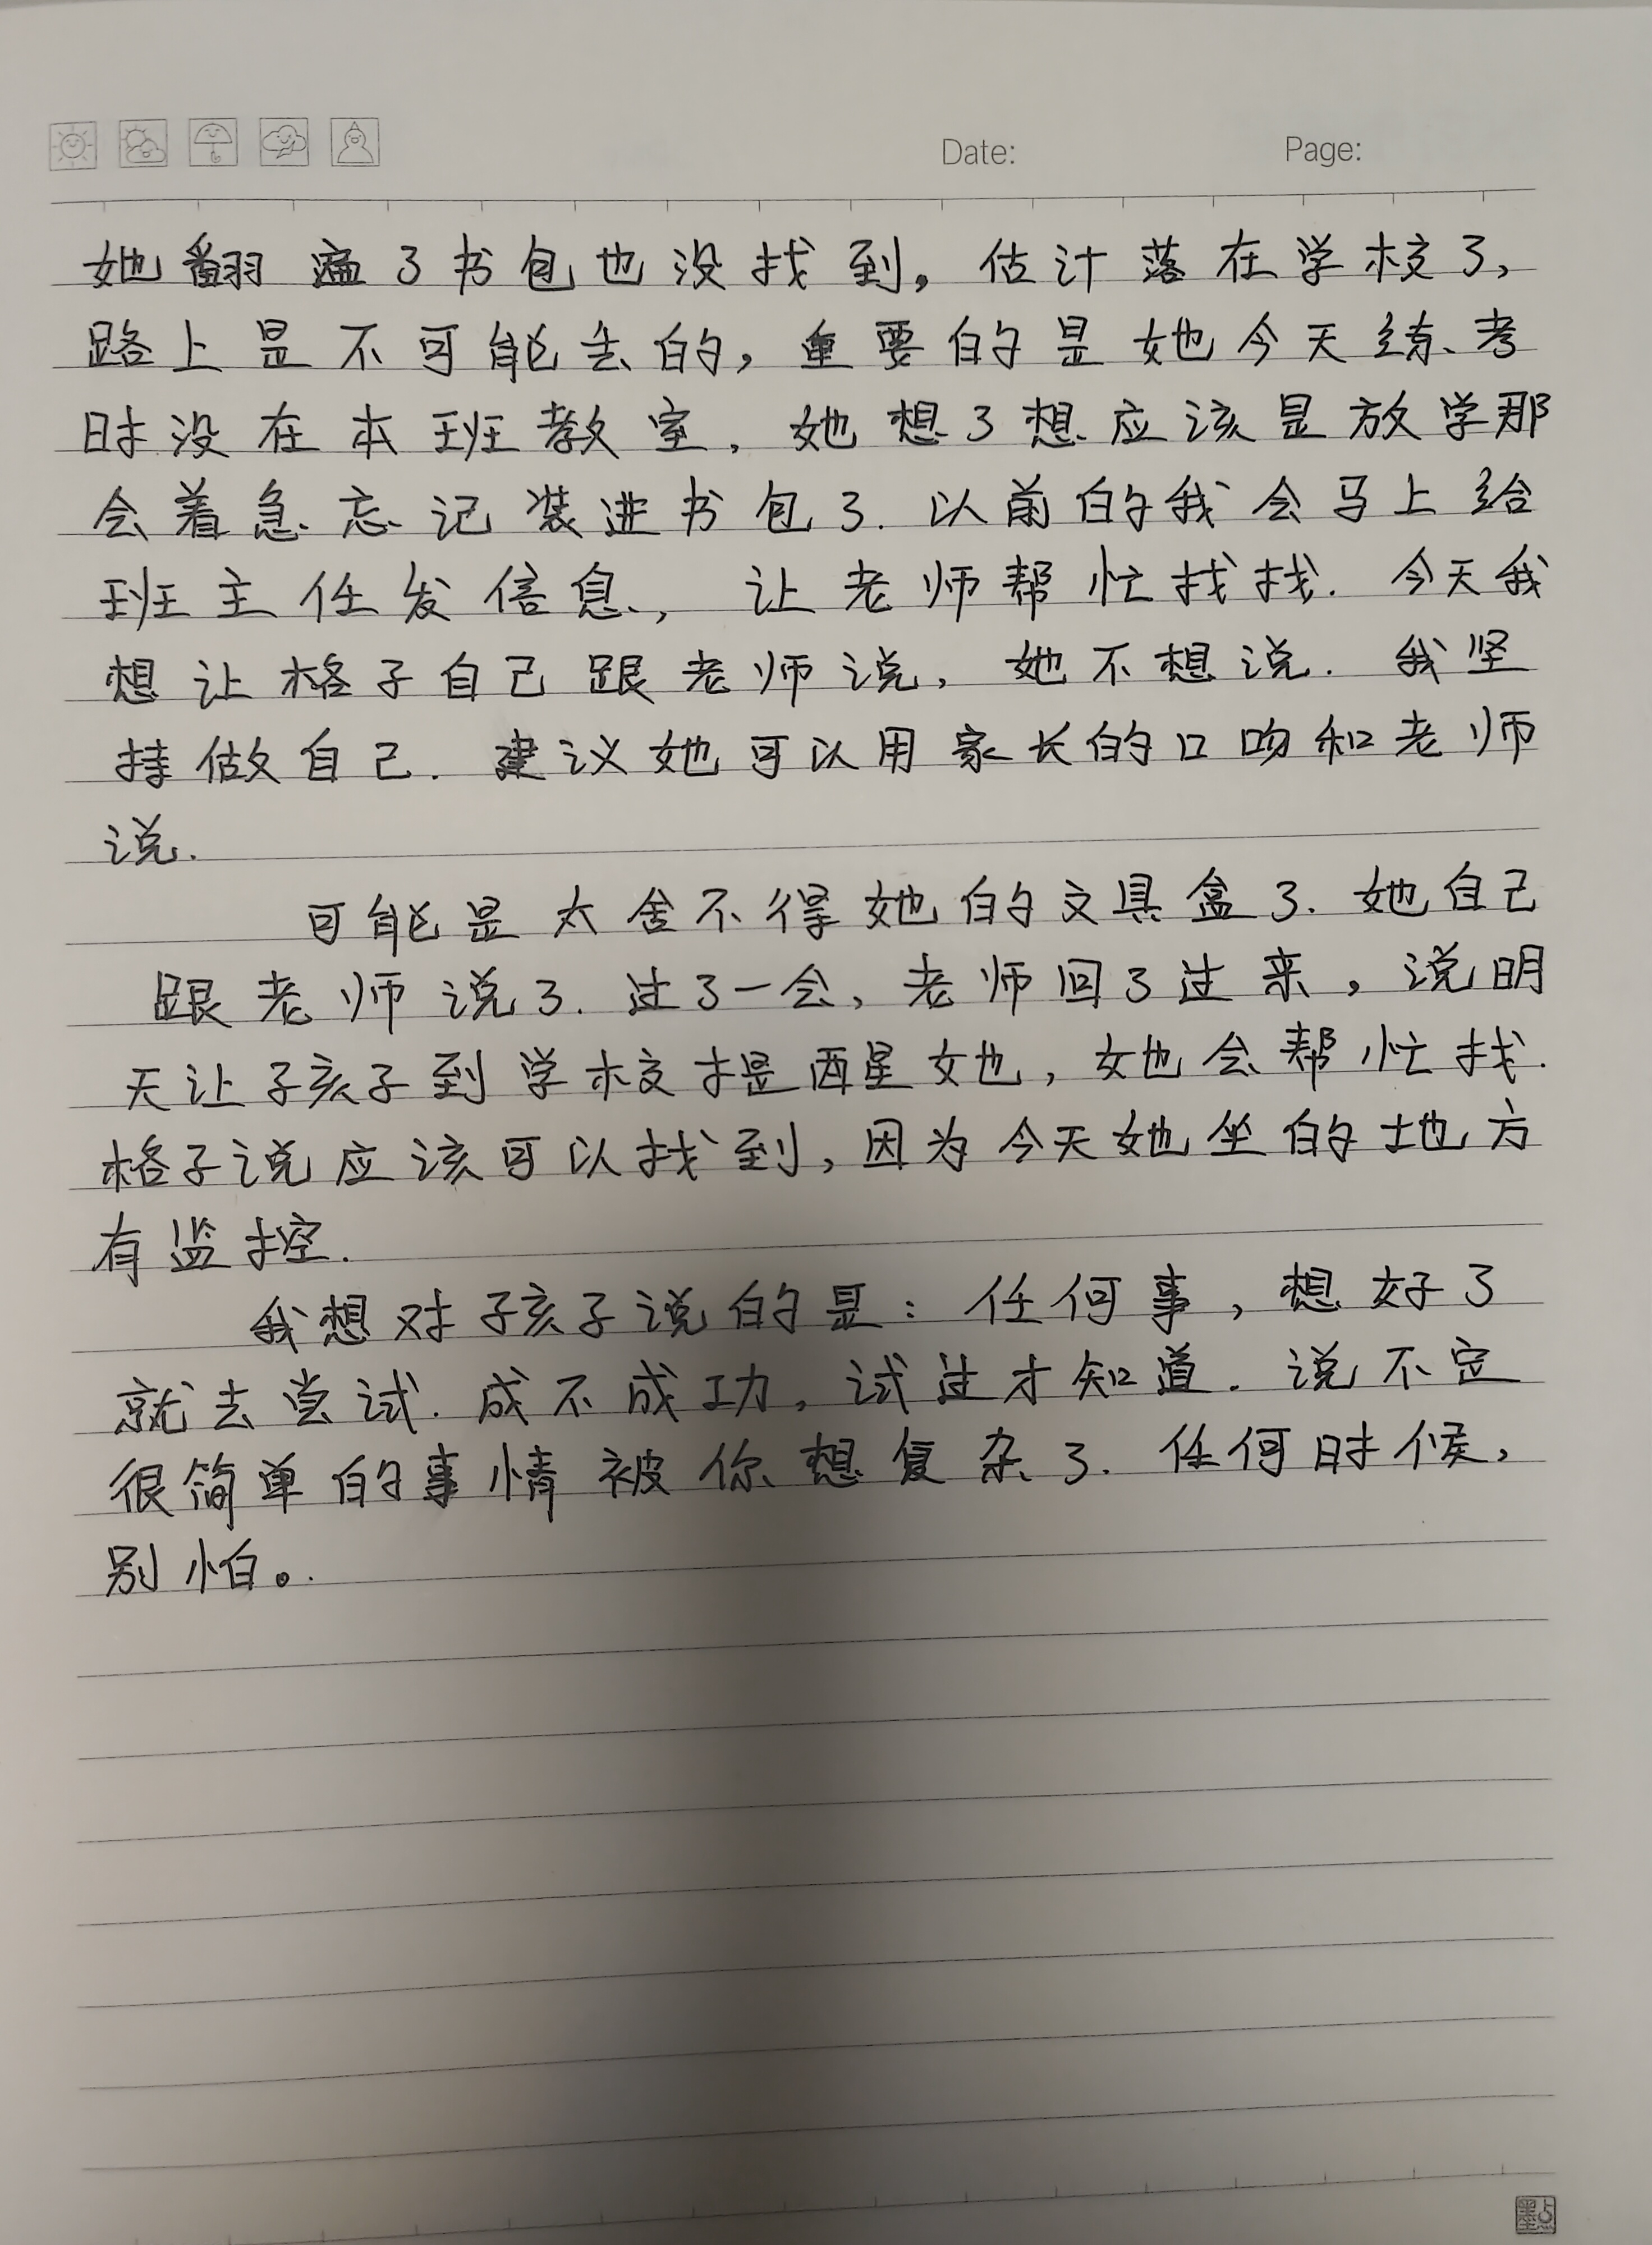 Date: Page:
她翻遍了书包也没找到。估计落在学校了,
路上是不可能丢的,重要的是她今天练、考
时没在本班教室,她想了想应该是放学那
会着急忘记装进书包了.以前的我会马上给
班主任发信息,让老师帮忙找找.今天我
想让格子自己跟老师说,她不想说.我坚
持做自己.建议她可以用家长的口吻和老师
说.
可能是太舍不得她的文具盒了.她自己
跟老师说了.过了一会,老师回了过来,说明
天让孩子到学校提醒她,她会帮忙找.
格子说应该可以找到,因为今天她坐的地方
有监控.
我想对孩子说的是:任何事,想好了
就去尝试.成不成功,试过才知道.说不定
很简单的事情被你想复杂了.任何时候,
别怕。.
點